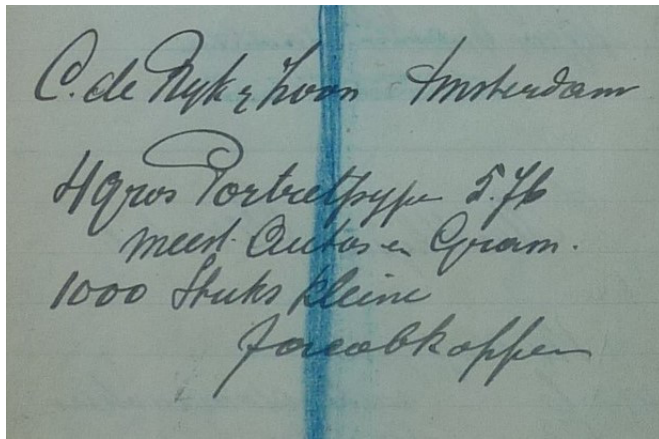 C. de Ryk & Zoon Amsterdam
4 gros Portretpype 5.76
meest Autos en Gram.
1000 Stuks kleine
Jacobkoppen